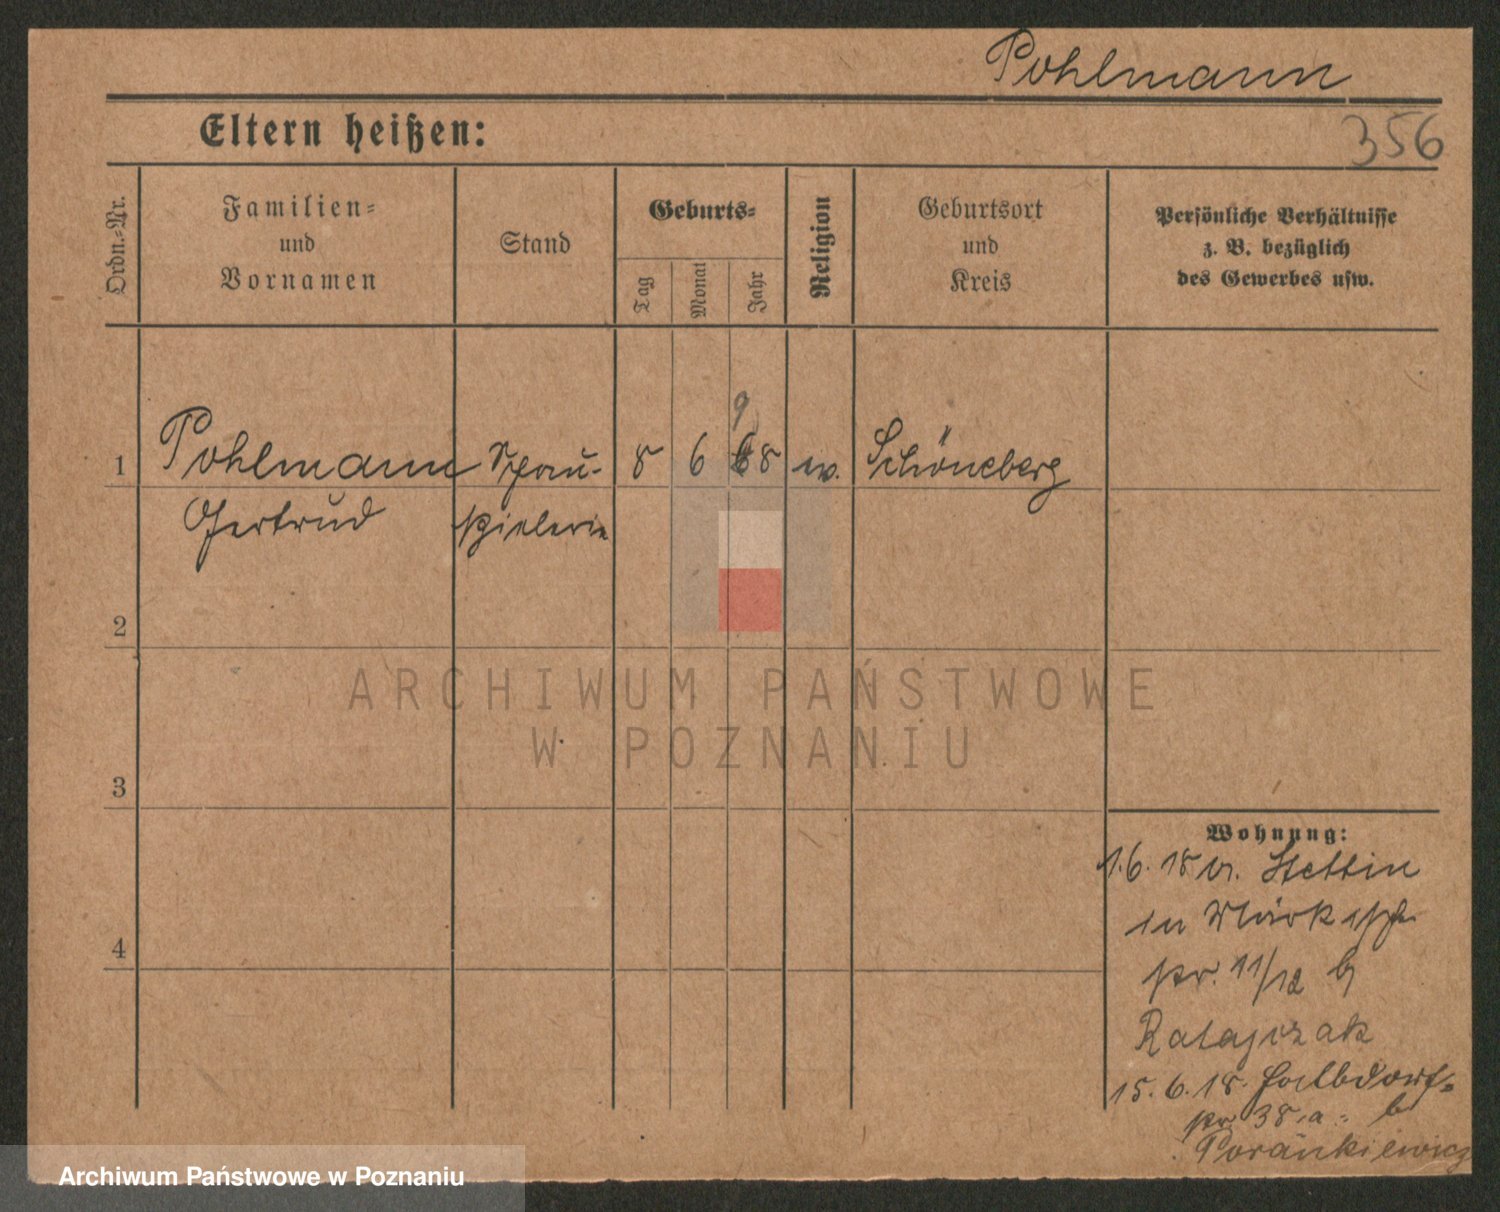 Pohlmann
356
Eltern heißen:
Ordn.-Nr.
Familien-
und
Vornamen
Stand
Geburts-
Tag
Monat
Jahr
Religion
Geburtsort
und
Kreis
Persönliche Verhältnisse
z. B. bezüglich
des Gewerbes usw.
9
1 Pohlmann Schau- 8 6 68 ev. Schöneberg
Gertrud spielerin
2
3
4
Wohnung:
1.6.18 v. Stettin
in Märkisch
str. 11/12 b
Ratajczak
15.6.18. Halbdorf-
str 38.a. b
Porankiewicz
ARCHIWUM PAŃSTWOWE
W POZNANIU
Archiwum Państwowe w Poznaniu